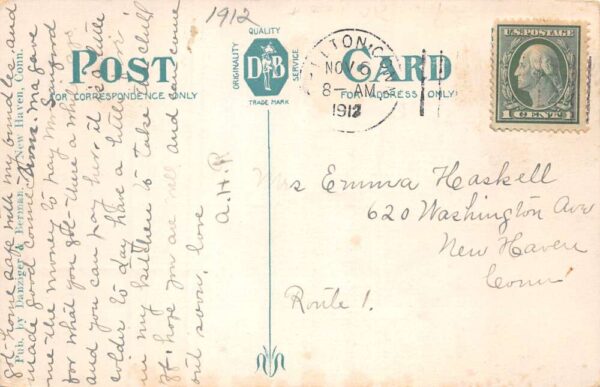 1912
POST CARD
FOR CORRESPONDENCE ONLY
FOR ADDRESS ONLY
QUALITY
ORIGINALITY
SERVICE
D B
TRADE MARK
Pub. by Danziger & Berman, New Haven, Conn.
NOV 6
8- AM
1912
U.S. POSTAGE
1 CENT 1
got home safe with my bundles and
made good connections. Ma gave
me the money to pay Mrs Sanford
for what you got
and you can pay her. it is a little
colder to day have a little fire
in my kitchen to take the chill
off, hope you are well and can come
out soon, love
A. H. P.
Mrs Emma Haskell
620 Washington Ave
New Haven
Conn
Route 1.